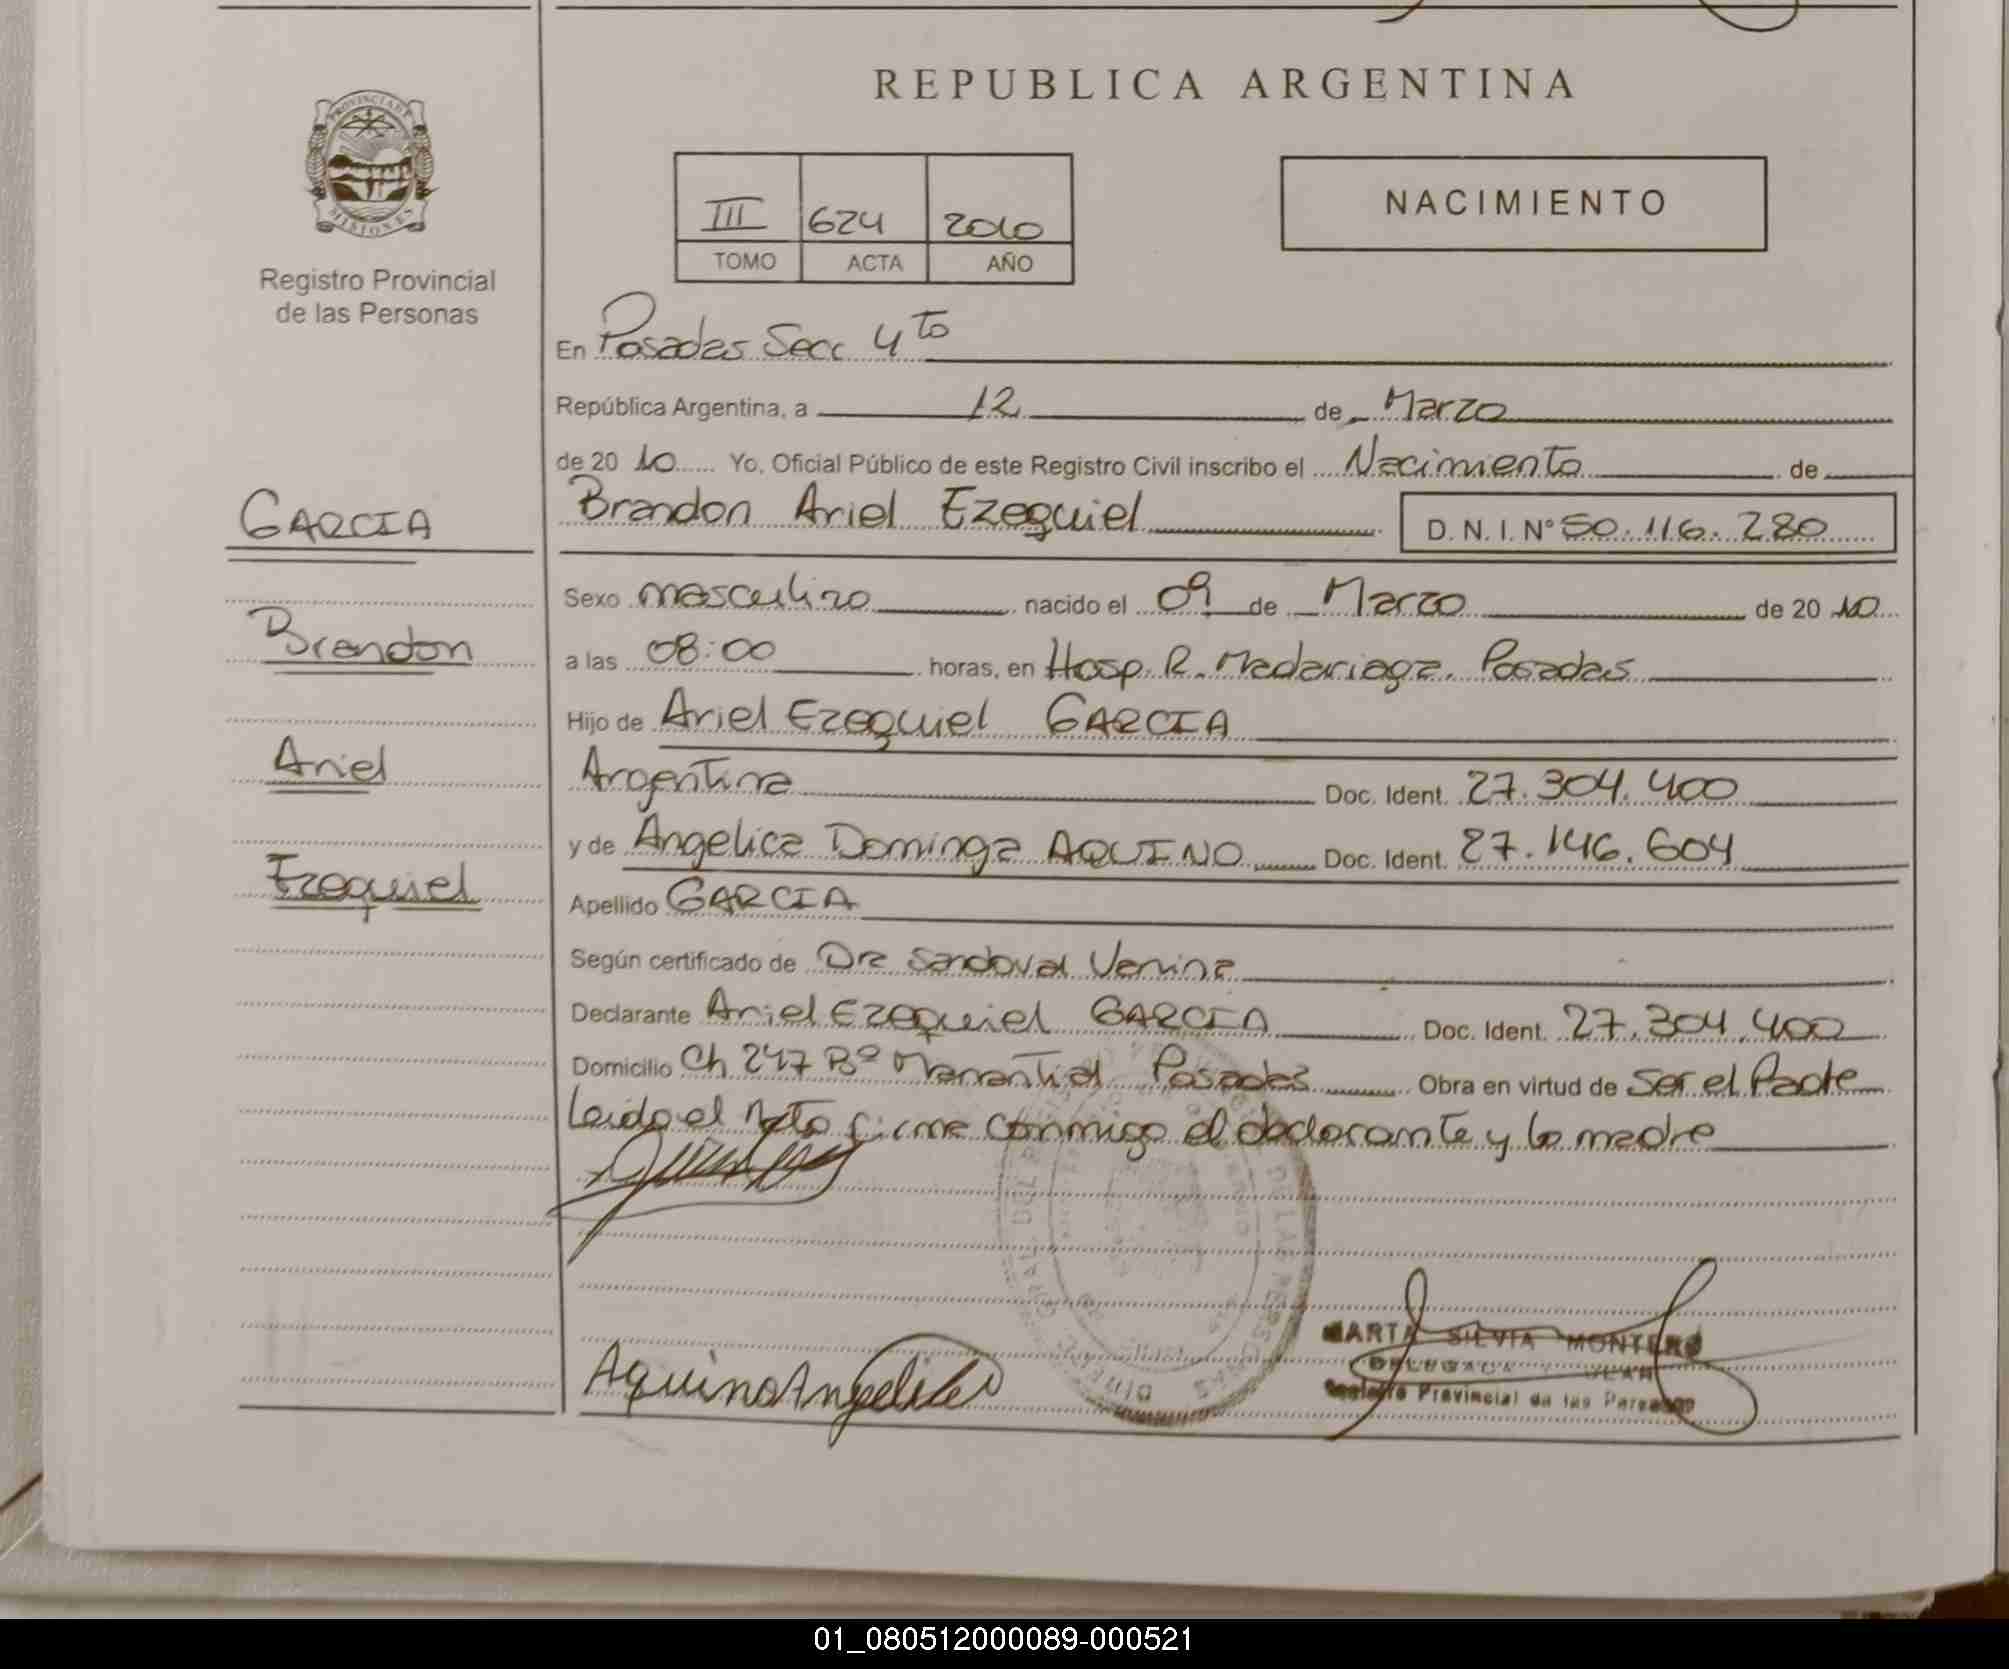 REPUBLICA ARGENTINA
PROVINCIA DE
MISIONES
Registro Provincial
de las Personas
III 624 2010
TOMO ACTA AÑO
NACIMIENTO
En Posadas Secc 4to
República Argentina, a 12 de Marzo
de 2010 Yo, Oficial Público de este Registro Civil inscribo el Nacimiento de
GARCIA
Brandon Ariel Ezequiel D. N. I. N° 50.116.280
Sexo masculino nacido el 09 de Marzo de 2010
Brandon
a las 08:00 horas, en Hosp. R. Madariaga. Posadas
Hijo de Ariel Ezequiel GARCIA
Ariel
Argentina Doc. Ident. 27.304.400
y de Angelica Dominga AQUINO Doc. Ident. 27.146.604
Ezequiel
Apellido GARCIA
Según certificado de Dra Sandoval Vanina
Declarante Ariel Ezequiel GARCIA Doc. Ident. 27.304.400
Domicilio Ch 247 Bº Manantial Posadas Obra en virtud de Ser el Padre
Leido el Acta firma conmigo el declarante y la madre
Aquino Angelica
MARTA SILVIA MONTERO
DELEGADA
Registro Provincial de las Personas
01_080512000089-000521